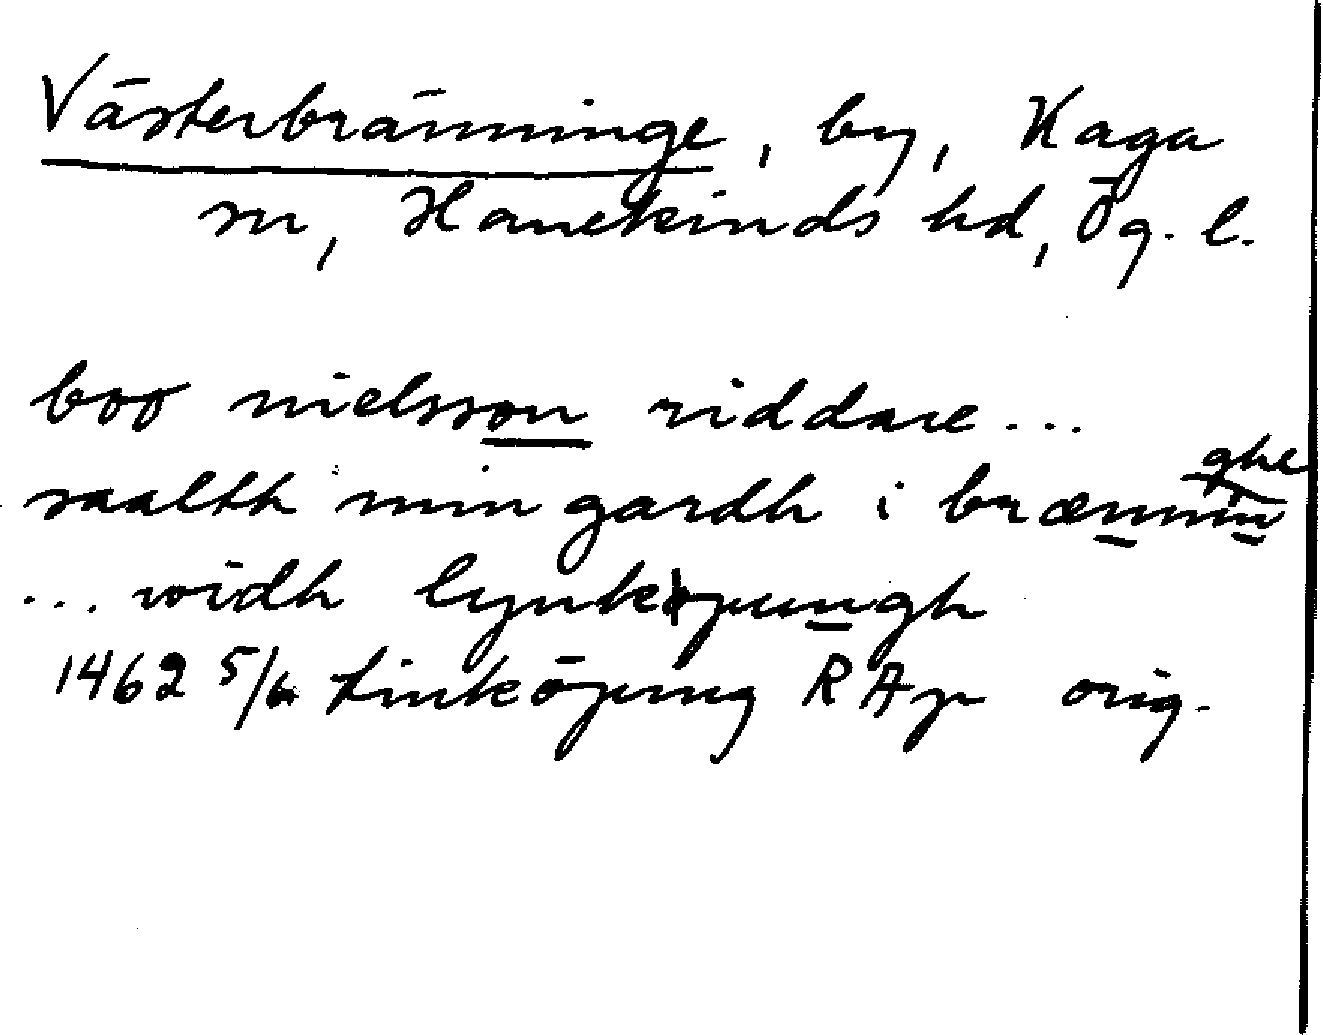 Västerbränninge, by, Kaga
sn, Hanekinds hd, Ög. l.
boo nielsson riddare...
saalth min gardh i brænninghe
... widh lynkøpungh
1462 5/6 Linköping RAp orig.